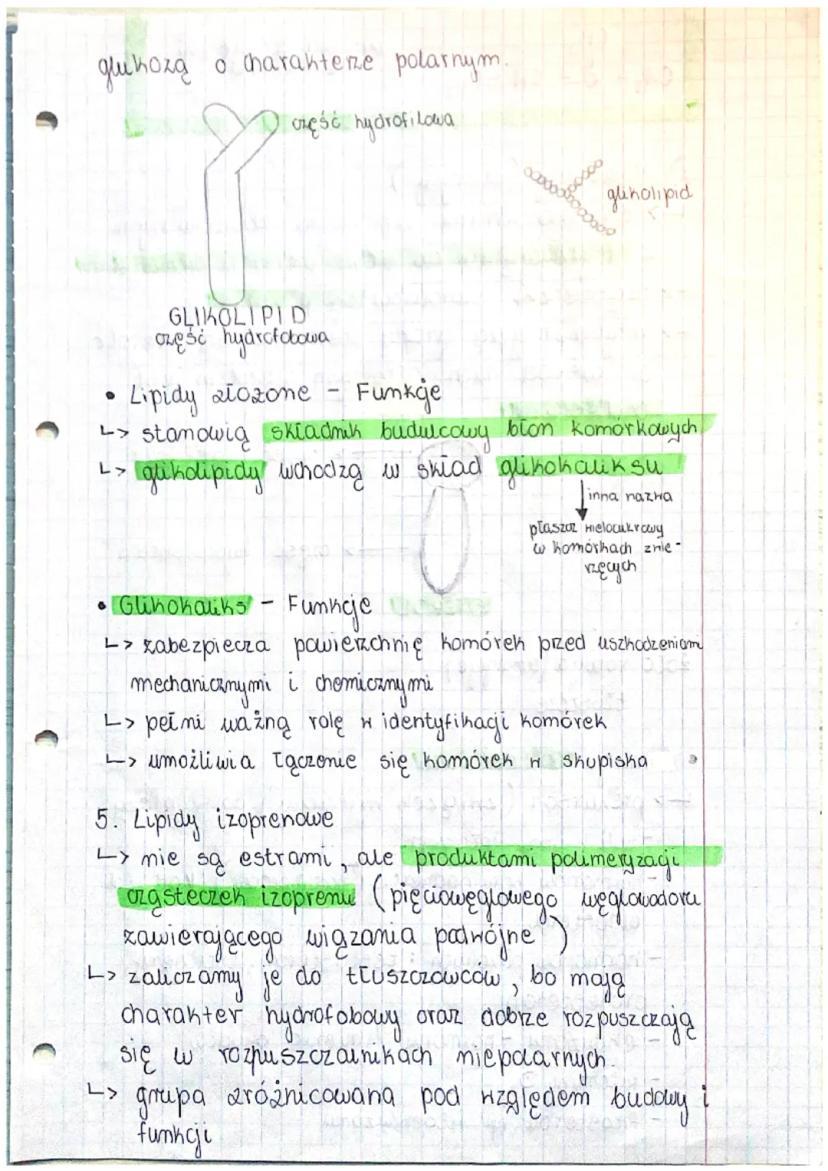 glukozą o charakterze polarnym.
część hydrofilowa
glikolipid
GLIKOLIPID
część hydrofobowa
• Lipidy złożone - Funkcje
↳ stanowią składnik budulcowy błon komórkowych
↳ glikolipidy wchodzą w skład glikokaliksu
inna nazwa
płaszcz wielocukrowy
w komórkach zwie-
rzęcych
• Glikokaliks - Funkcje
↳ zabezpiecza powierzchnię komórek przed uszkodzeniam
mechanicznymi i chemicznymi
↳ pełni ważną rolę w identyfikacji komórek
↳ umożliwia łączenie się komórek w skupiska
5. Lipidy izoprenowe
↳ nie są estrami, ale produktami polimeryzacji
cząsteczek izoprenu (pięciowęglowego węglowodoru
zawierającego wiązania podwójne)
↳ zaliczamy je do tłuszczowców, bo mają
charakter hydrofobowy oraz dobrze rozpuszczają
się w rozpuszczalnikach niepolarnych.
↳ grupa zróżnicowana pod względem budowy i
funkcji